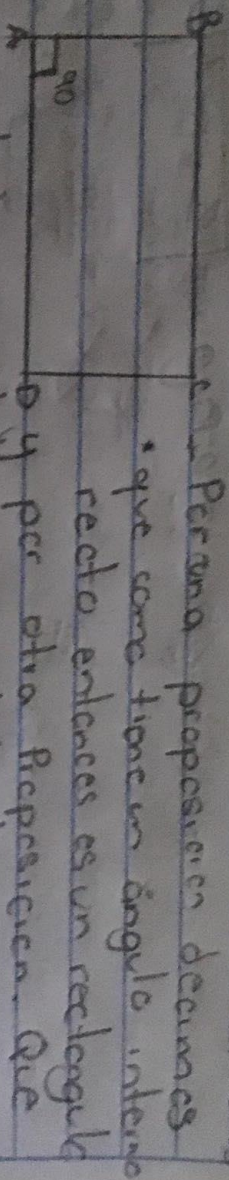 A B
90
D C
Por una proposición decimos
que como tiene un ángulo interno
recto entonces es un rectangulo
y por otra Proposición. Que